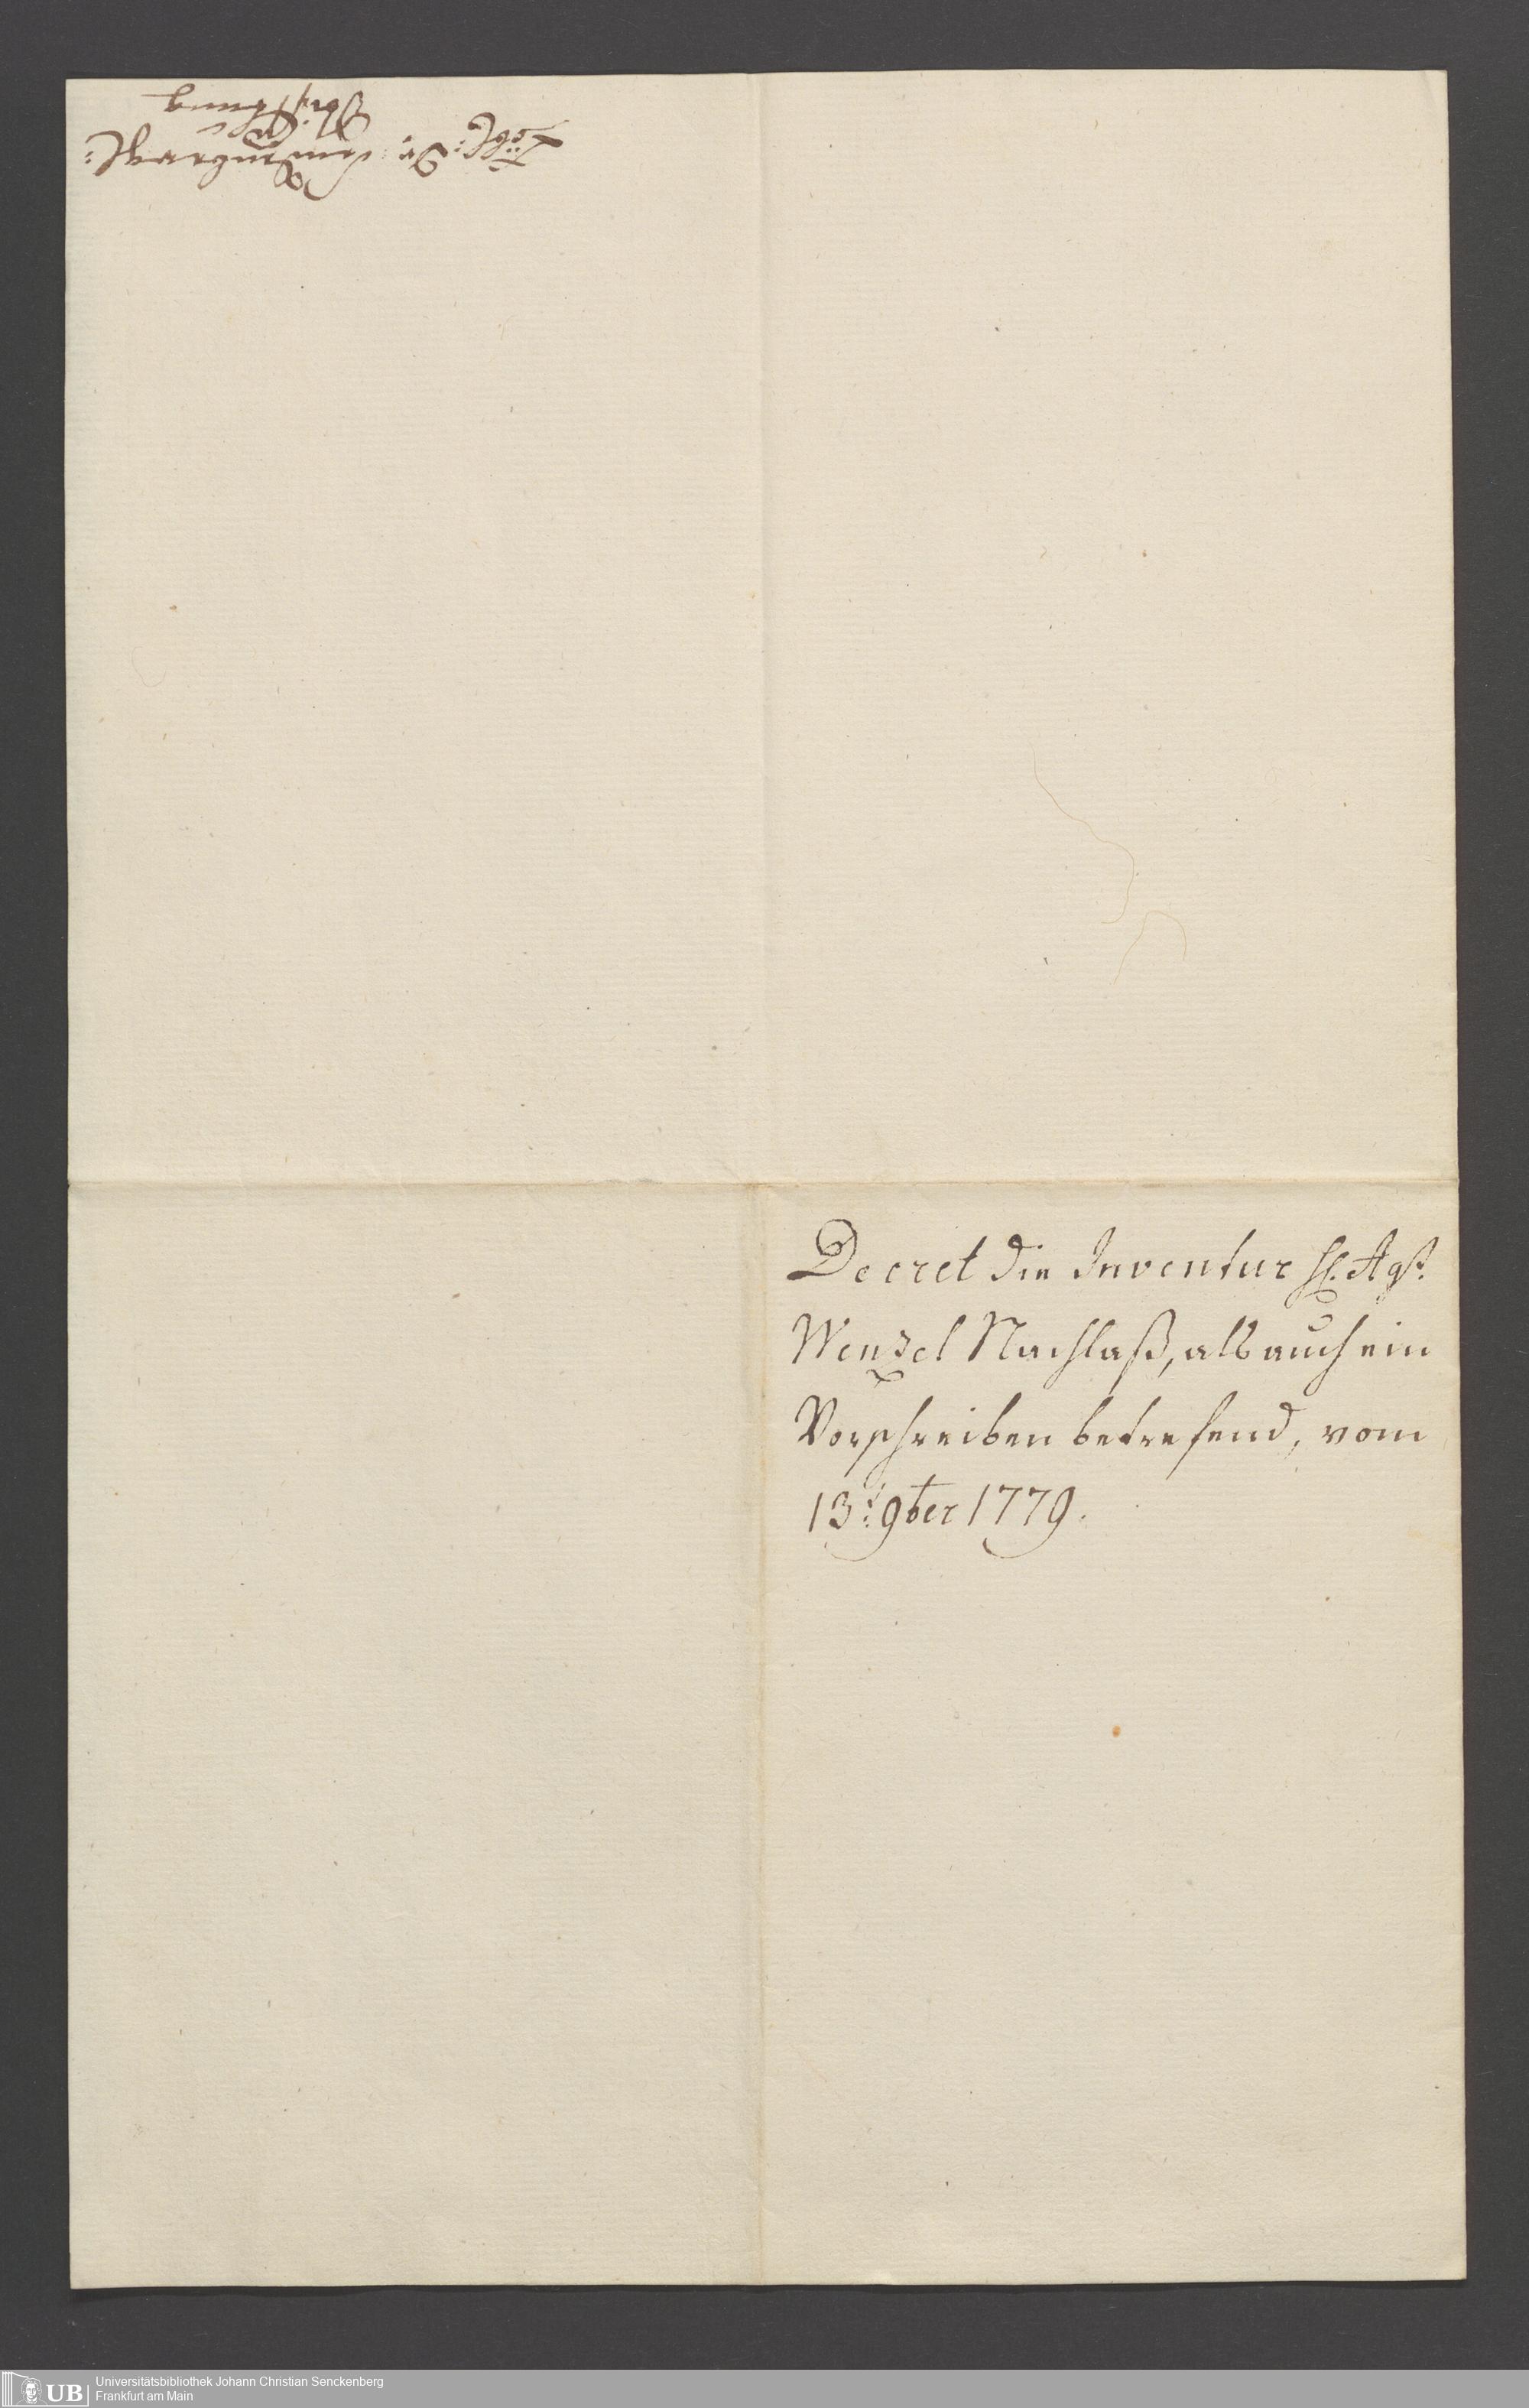 Löbl: Dr: Senckenbergl:
Stiftung
Decret die Inventur H. Agst.
Wenzel Nachlaß, als auch ein
Vorschreiben betrefend, vom
13t: 9ber 1779.
UB
Universitätsbibliothek Johann Christian Senckenberg
Frankfurt am Main